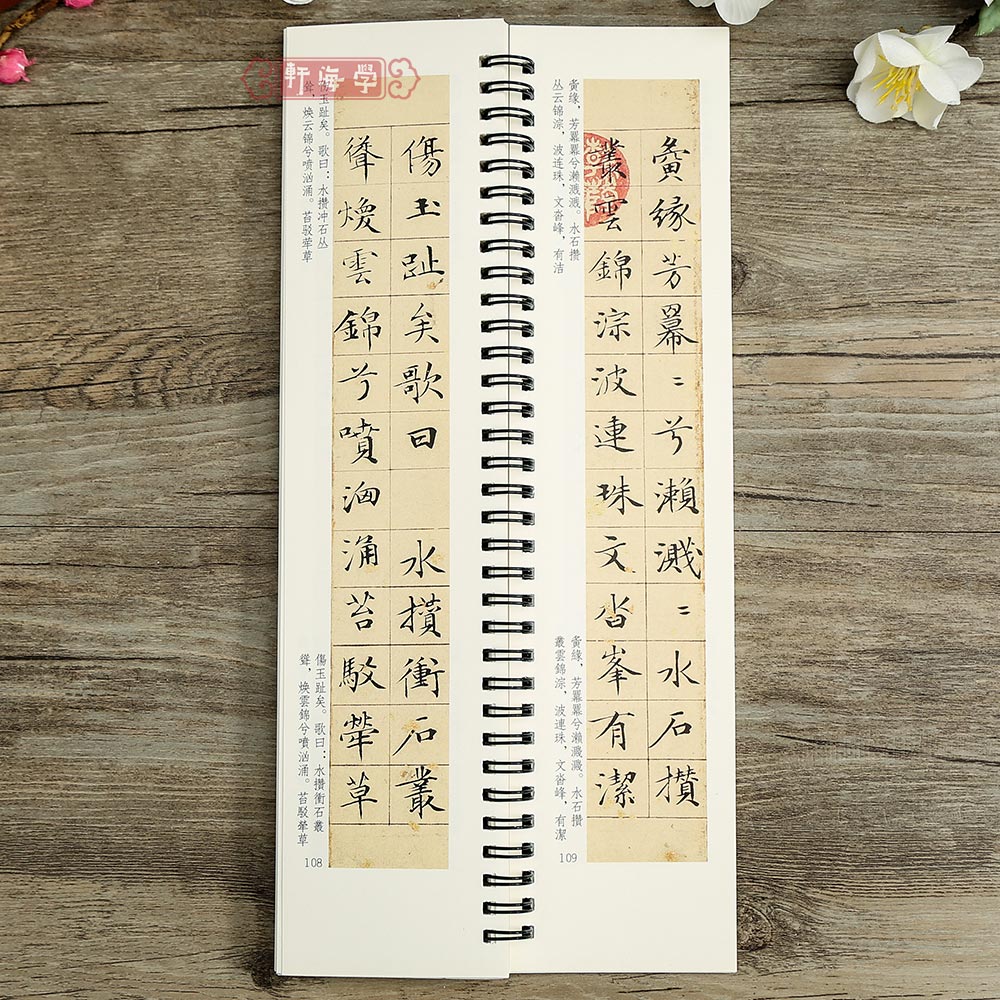 學海軒
傷玉趾矣歌曰 水攢衝石叢
聳煥雲錦兮噴洶涌苔駮犖草
伤玉趾矣。歌曰：水攒冲石丛
耸，焕云锦兮喷汹涌。苔驳荦草
傷玉趾矣。歌曰：水攢衝石叢
聳，煥雲錦兮噴洶涌。苔駁犖草
108
夤緣芳羃〻兮瀨濺〻水石攢
叢雲錦淙波連珠文沓峯有潔
夤缘，芳羃羃兮濑溅溅。水石攒
丛云锦淙，波连珠，文沓峰，有洁
夤緣，芳羃羃兮瀨濺濺。水石攢
叢雲錦淙，波連珠，文沓峰，有潔
109